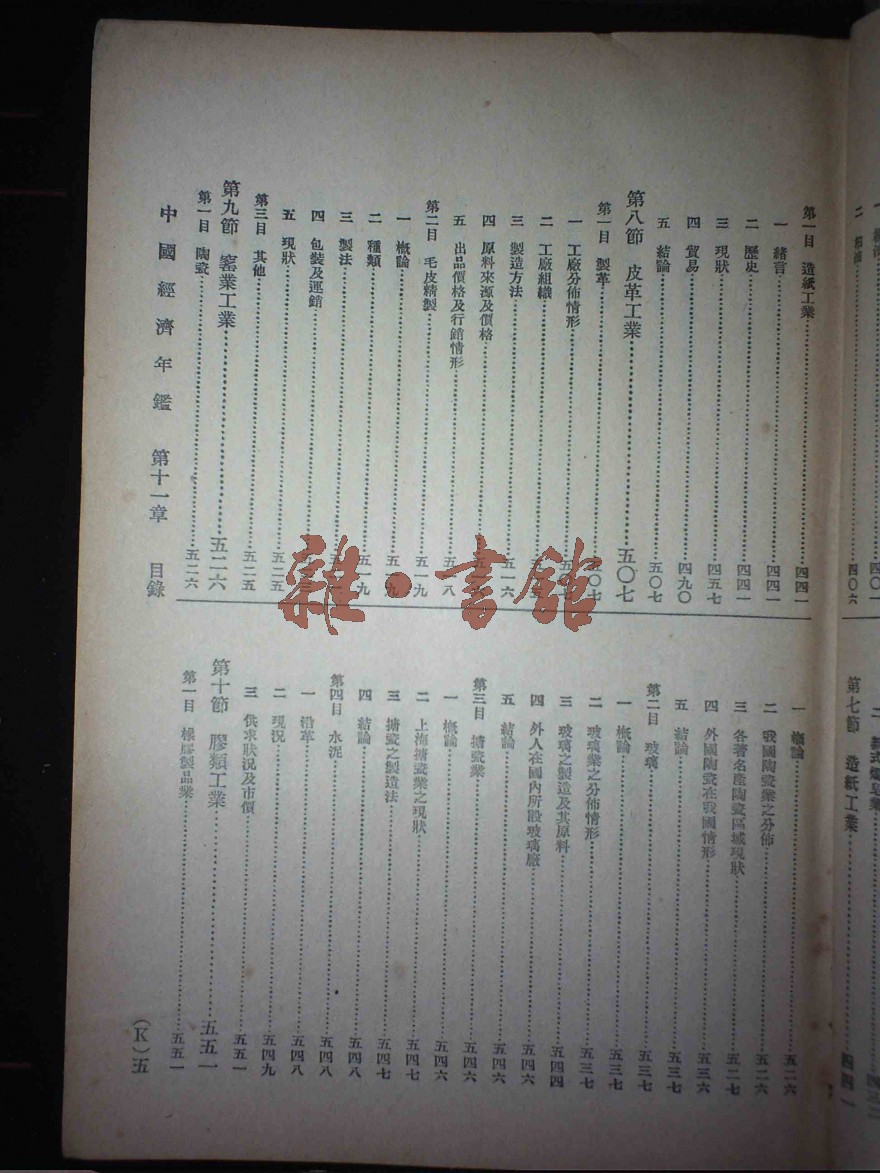 四〇六
第七節 造紙工業……四四一
第一目 造紙工業……四四一
一 緒言……四四一
二 歷史……四四一
三 現狀……四五七
四 貿易……四九〇
五 結論……五〇七
第八節 皮革工業……五〇七
第一目 製革……五〇七
一 工廠分佈情形……五〇七
二 工廠組織……
三 製造方法……五一六
四 原料來源及價格……
五 出品價格及行銷情形……五一八
第二目 毛皮精製……五一九
一 概論……五一九
二 種類……五一九
三 製法……
四 包裝及運銷……
五 現狀……五二五
第三目 其他……五二五
第九節 窰業工業……五二六
第一目 陶瓷……五二六
一 概論……五二六
二 我國陶瓷業之分佈……五二六
三 各著名產陶瓷區域現狀……五二七
四 外國陶瓷在我國情形……五三六
五 結論……五三七
第二目 玻璃……五三七
一 概論……五三七
二 玻璃業之分佈情形……五三七
三 玻璃之製造及其原料……五四四
四 外人在國內所設玻璃廠……五四六
五 結論……五四六
第三目 搪瓷業……五四六
一 概論……五四六
二 上海搪瓷業之現狀……五四七
三 搪瓷之製造法……五四七
四 結論……五四八
第四目 水泥……五四八
一 沿革……五四八
二 現況……五四九
三 供求狀況及市價……五五一
第十節 膠類工業……五五一
第一目 橡膠製品業……五五一
中國經濟年鑑 第十一章 目錄
(K)五
雜·書館